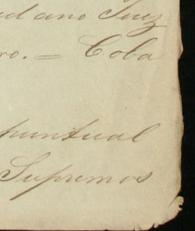 dano Juez
ro. = Coba
puntual
Supremos